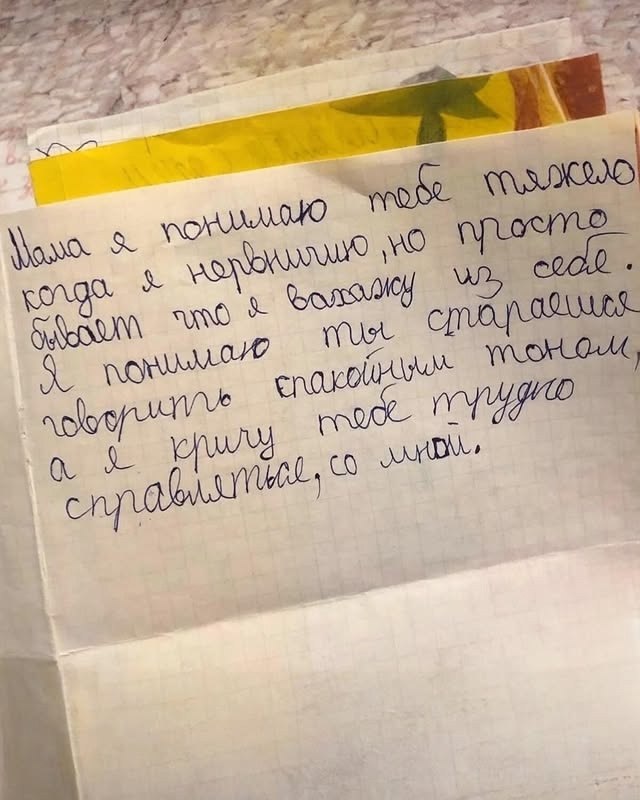 Мама я понимаю тебе тяжело
когда я нервничию, но просто
бывает что я вахажу из себе.
Я понимаю ты стараешся
говорить спакойным тоном,
а я кричу тебе трудно
справляться, со мной.